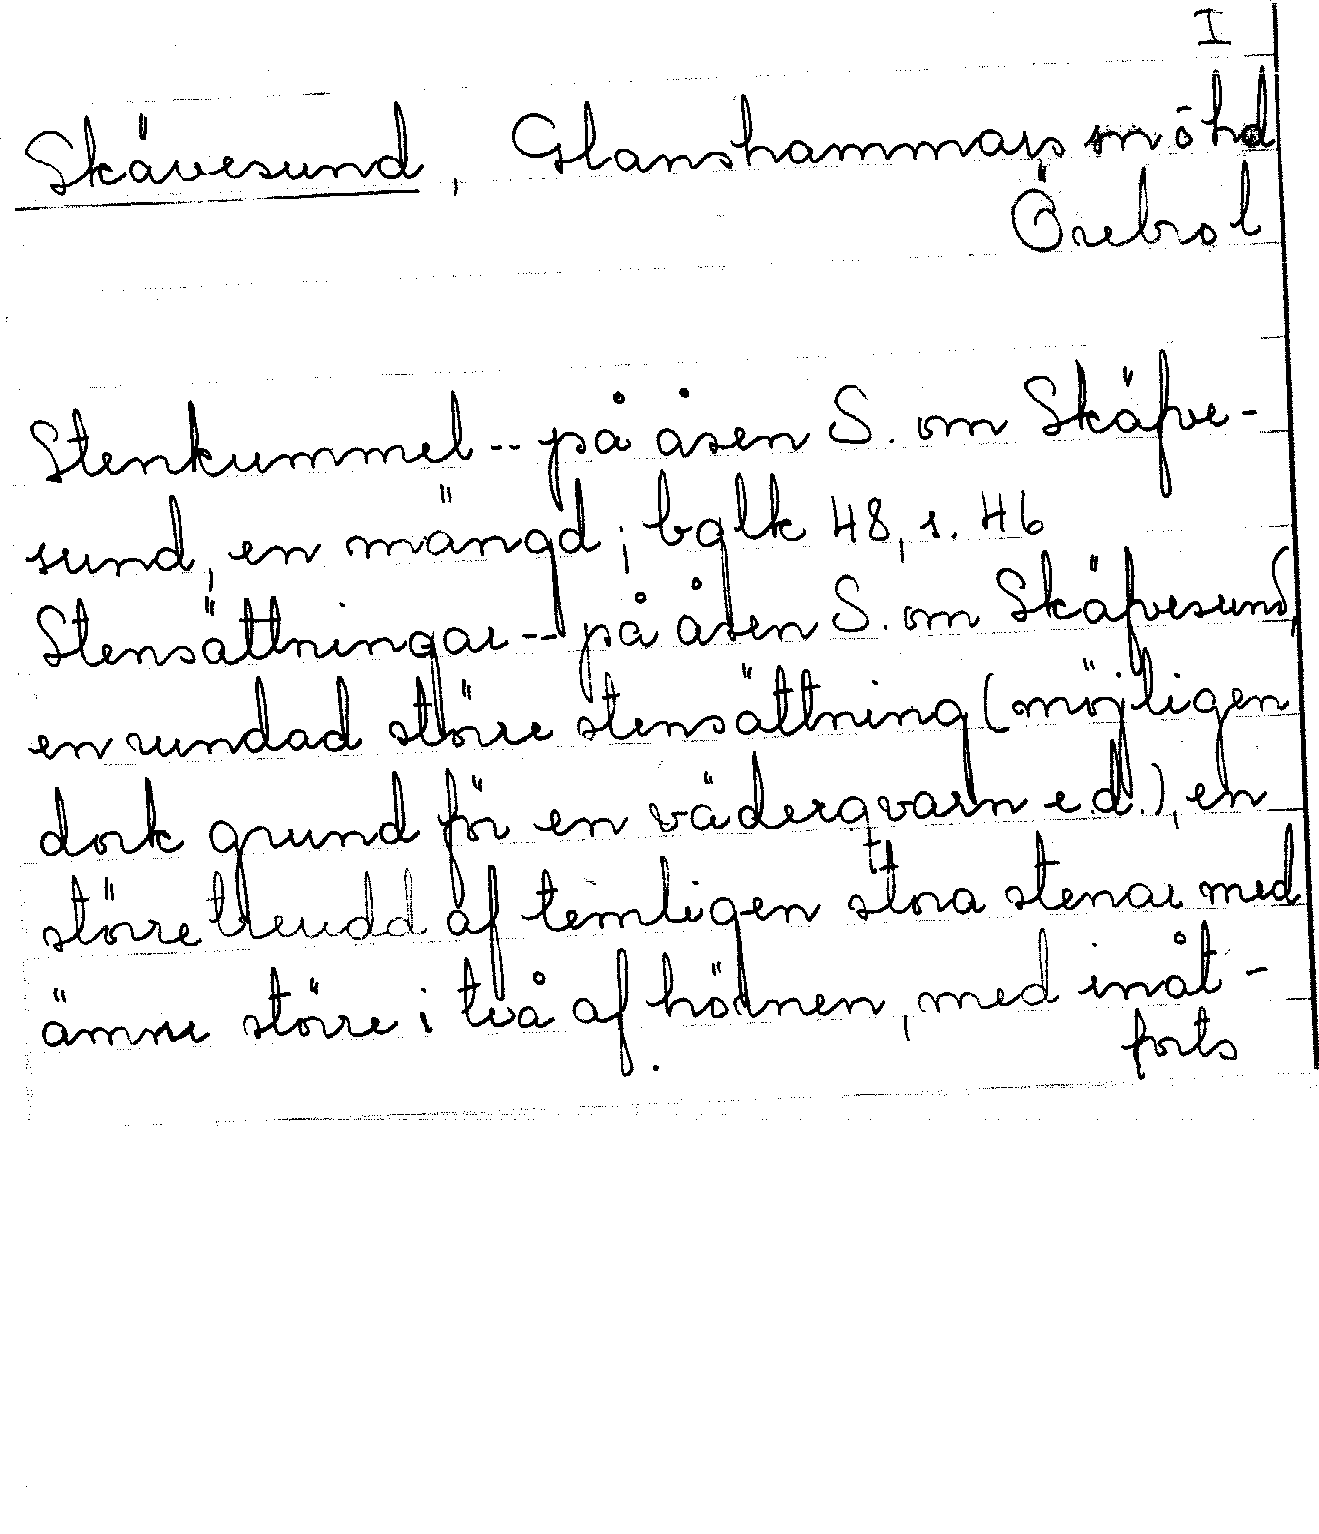 I
Skävesund, Glanshammars sn o hd
Örebro l
Stenkummel -- på åsen S. om Skäfve-
sund, en mängd; bglk 48, s. 46
Stensättningar -- på åsen S. om Skäfvesund,
en rundad större stensättning (möjligen
dock grund för en väderqvarn e.d.), en
större treudd af temligen stora stenar med
ännu större i två af hörnen, med inåt-
forts